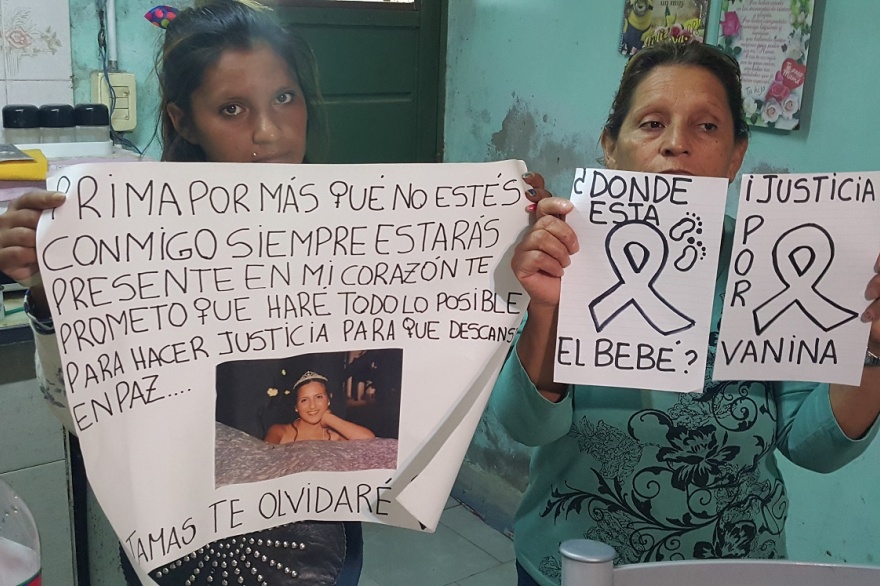 PRIMA POR MÁS QUÉ NO ESTÉS
CONMIGO SIEMPRE ESTARÁS
PRESENTE EN MI CORAZÓN TE
PROMETO QUE HARÉ TODO LO POSIBLE
PARA HACER JUSTICIA PARA QUE DESCANS
EN PAZ....
JAMAS TE OLVIDARÉ
¿DONDE
ESTA
EL BEBÉ?
¡JUSTICIA
POR
VANINA